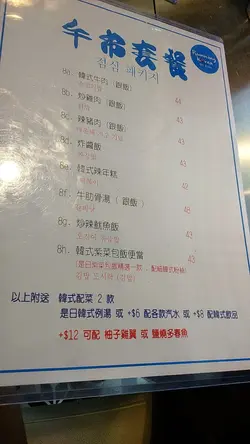 午市套餐
점심 패키지
8a. 韓式牛肉（跟飯） 44
8b. 炒雞肉（跟飯） 43
8c. 辣豬肉（跟飯） 43
8d. 炸醬飯 43
8e. 韓式辣年糕 43
8f. 牛肋骨湯（跟飯） 48
8g. 炒辣魷魚飯 43
8h. 韓式紫菜包飯便當 43
以上附送 韓式配菜 2 款
是日韓式例湯 或 +$6 配各款汽水 或 +$8 配韓式飲品
+$12 可配 柚子雞翼 或 鹽燒多春魚